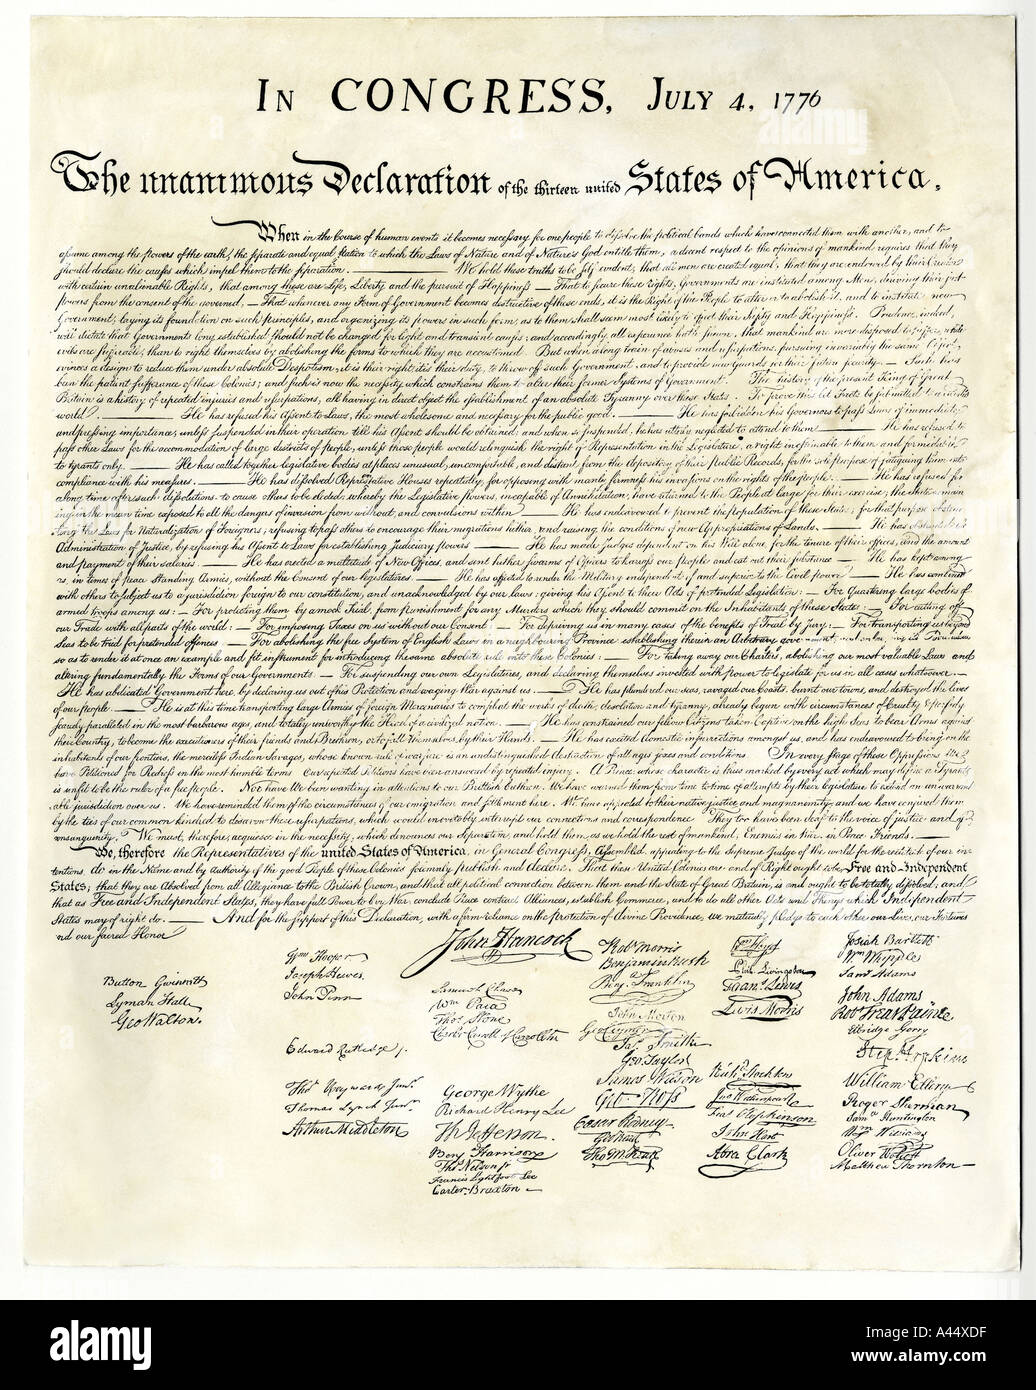 In CONGRESS, July 4, 1776
The unanimous Declaration of the thirteen united States of America.
When in the Course of human events it becomes necessary for one people to dissolve the political bands which have connected them with another, and to
assume among the powers of the earth, the separate and equal station to which the Laws of Nature and of Nature's God entitle them, a decent respect to the opinions of mankind requires that they
should declare the causes which impel them to the separation. — We hold these truths to be self evident, that all men are created equal, that they are endowed by their Creator
with certain unalienable Rights, that among these are Life, Liberty and the pursuit of Happiness — That to secure these rights, Governments are instituted among Men, deriving their just
powers from the consent of the governed, — That whenever any Form of Government becomes destructive of these ends, it is the Right of the People to alter or to abolish it, and to institute new
Government, laying its foundation on such principles, and organizing its powers in such form, as to them shall seem most likely to effect their Safety and Happiness. Prudence, indeed,
will dictate that Governments long established should not be changed for light and transient causes; and accordingly all experience hath shewn, that mankind are more disposed to suffer, while
evils are sufferable, than to right themselves by abolishing the forms to which they are accustomed. But when a long train of abuses and usurpations, pursuing invariably the same Object,
evinces a design to reduce them under absolute Despotism, it is their right, it is their duty, to throw off such Government, and to provide new Guards for their future security. — Such has
been the patient sufferance of these Colonies; and such is now the necessity which constrains them to alter their former Systems of Government. The history of the present King of Great
Britain is a history of repeated injuries and usurpations, all having in direct object the establishment of an absolute Tyranny over these States. To prove this let Facts be submitted to a candid
world. — He has refused his Assent to Laws, the most wholesome and necessary for the public good. — He has forbidden his Governors to pass Laws of immediate
and pressing importance, unless suspended in their operation till his Assent should be obtained; and when so suspended, he has utterly neglected to attend to them — He has refused to
pass other Laws for the accommodation of large districts of people, unless those people would relinquish the right of Representation in the Legislature, a right inestimable to them and formidable
to tyrants only. — He has called together legislative bodies at places unusual, uncomfortable, and distant from the depository of their public Records, for the sole purpose of fatiguing them into
compliance with his measures. — He has dissolved Representative Houses repeatedly, for opposing with manly firmness his invasions on the rights of the people. — He has refused for
a long time after such dissolutions to cause others to be elected; whereby the Legislative powers, incapable of Annihilation, have returned to the People at large for their exercise; the State remain
ing in the mean time exposed to all the dangers of invasion from without, and convulsions within — He has endeavoured to prevent the population of these States; for that purpose obstruc
ting the Laws for Naturalization of Foreigners; refusing to pass others to encourage their migrations hither, and raising the conditions of new Appropriations of Lands. — He has obstructed the
Administration of Justice, by refusing his Assent to Laws for establishing Judiciary powers — He has made Judges dependent on his Will alone, for the tenure of their offices, and the amount
and payment of their salaries. — He has erected a multitude of New Offices, and sent hither swarms of Officers to harass our People and eat out their substance — He has kept among
us, in times of peace Standing Armies, without the Consent of our legislatures. — He has affected to render the Military independent of and superior to the Civil power — He has combined
with others to subject us to a jurisdiction foreign to our constitution, and unacknowledged by our laws; giving his Assent to their Acts of pretended Legislation: — For Quartering large bodies of
armed troops among us: — For protecting them by a mock Trial, from punishment for any Murders which they should commit on the Inhabitants of these States: — For cutting off
our Trade with all parts of the world: — For imposing Taxes on us without our Consent: — For depriving us in many cases of the benefits of Trial by Jury: — For transporting us beyond
Seas to be tried for pretended offences — For abolishing the free System of English Laws in a neighbouring Province establishing therein an Arbitrary government, and
so as to render it at once an example and fit instrument for introducing the same absolute rule into these Colonies: — For taking away our Charters, abolishing our most valuable Laws and
altering fundamentally the Forms of our Governments — For suspending our own Legislatures, and declaring themselves invested with power to legislate for us in all cases whatsoever. —
He has abdicated Government here, by declaring us out of his Protection and waging War against us. — He has plundered our seas, ravaged our Coasts, burnt our towns, and destroyed the lives
of our people. — He is at this time transporting large Armies of foreign Mercenaries to compleat the works of death, desolation and tyranny, already begun with circumstances of Cruelty & perfidy
scarcely paralleled in the most barbarous ages, and totally unworthy the Head of a civilized nation. — He has constrained our fellow Citizens taken Captive on the high Seas to bear Arms against
their Country, to become the executioners of their friends and Brethren, or to fall themselves by their Hands. — He has excited domestic insurrections amongst us, and has endeavoured to bring on the
inhabitants of our frontiers, the merciless Indian Savages, whose known rule of warfare is an undistinguished destruction of all ages sexes and conditions. In every stage of these Oppressions We
have Petitioned for Redress in the most humble terms Our repeated Petitions have been answered by repeated injury. A Prince, whose character is thus marked by every act which may define a Tyrant,
is unfit to be the ruler of a free people. Nor have We been wanting in attentions to our Brittish brethren. We have warned them from time to time of attempts by their legislature to extend an unwarrant
able jurisdiction over us. We have reminded them of the circumstances of our emigration and settlement here. We have appealed to their native justice and magnanimity, and we have conjured them
by the ties of our common kindred to disavow these usurpations, which would inevitably interrupt our connections and correspondence They too have been deaf to the voice of justice and of
consanguinity. We must, therefore, acquiesce in the necessity, which denounces our Separation, and hold them, as we hold the rest of mankind, Enemies in War, in Peace Friends. —
We, therefore the Representatives of the united States of America, in General Congress, Assembled, appealing to the Supreme Judge of the world for the rectitude of our in
tentions do in the Name and by authority of the good People of these Colonies solemnly publish and declare, That these United Colonies are and of Right ought to be Free and Independent
States; that they are Absolved from all Allegiance to the British Crown, and that all political connection between them and the State of Great Britain, is and ought to be totally dissolved; and
that as Free and Independent States, they have full Power to levy War, conclude Peace contract Alliances, establish Commerce, and to do all other Acts and Things which Independent
States may of right do. — And for the support of this Declaration, with a firm reliance on the protection of divine Providence, we mutually pledge to each other our Lives, our Fortunes
and our Sacred Honor
Button Gwinnett
Lyman Hall
Geo Walton.
Wm Hooper
Joseph Hewes,
John Penn
Edward Rutledge
Thos Heyward Junr
Thomas Lynch Junr
Arthur Middleton
John Hancock
Samuel Chase
Wm Paca
Thos Stone
Charles Carroll of Carrollton
George Wythe
Richard Henry Lee
Th Jefferson
Benj Harrison
Thos Nelson jr
Francis Lightfoot Lee
Carter Braxton
Robt Morris
Benjamin Rush
Benja Franklin
John Morton
Geo Clymer
Jas Smith
Geo Taylor
James Wilson
Geo Ross
Caesar Rodney
Geo Read
Tho M:Kean
Wm Floyd
Phil. Livingston
Frans. Lewis
Lewis Morris
Richd. Stockton
Jno Witherspoon
Fras. Hopkinson
John Hart
Abra Clark
Josiah Bartlett
Wm Whipple
Saml Adams
John Adams
Robt Treat Paine
Elbridge Gerry
Step. Hopkins
William Ellery
Roger Sherman
Saml Huntington
Wm Williams
Oliver Wolcott
Matthew Thornton
alamy
alamy
Image ID: A44XDF
www.alamy.com